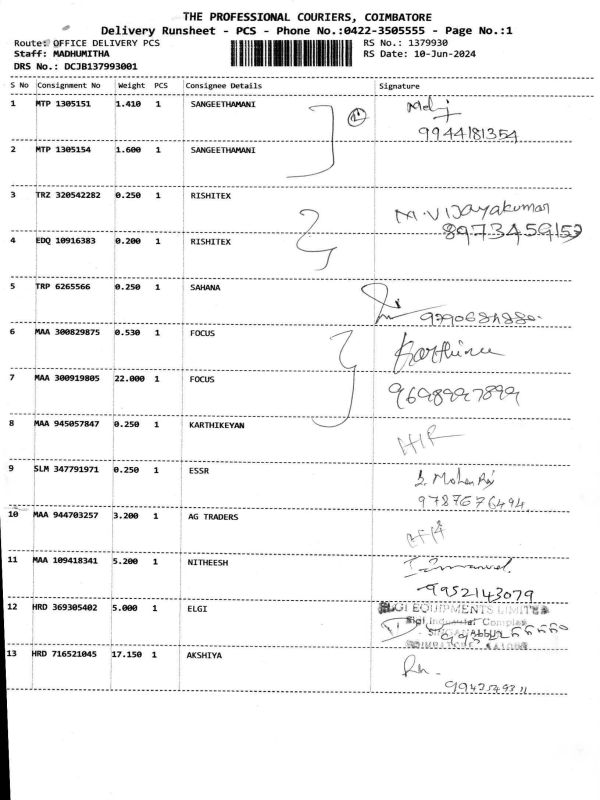 THE PROFESSIONAL COURIERS, COIMBATORE
Delivery Runsheet - PCS - Phone No.:0422-3505555 - Page No.:1
Route: OFFICE DELIVERY PCS RS No.: 1379930
Staff: MADHUMITHA RS Date: 10-Jun-2024
DRS No.: DCJB137993001
S No Consignment No Weight PCS Consignee Details Signature
1 MTP 1305151 1.410 1 SANGEETHAMANI
9944181354
2 MTP 1305154 1.600 1 SANGEETHAMANI
3 TRZ 320542282 0.250 1 RISHITEX M.VIJayakumar
8973459153
4 EDQ 10916383 0.200 1 RISHITEX
5 TRP 6265566 0.250 1 SAHANA
6 MAA 300829875 0.530 1 FOCUS
7 MAA 300919805 22.000 1 FOCUS
8 MAA 945057847 0.250 1 KARTHIKEYAN
9 SLM 347791971 0.250 1 ESSR
9787676494
10 MAA 944703257 3.200 1 AG TRADERS
11 MAA 109418341 5.200 1 NITHEESH
9952143079
12 HRD 369305402 5.000 1 ELGI ELGI EQUIPMENTS LIMITED
Elgi Industrial Complex
13 HRD 716521045 17.150 1 AKSHIYA